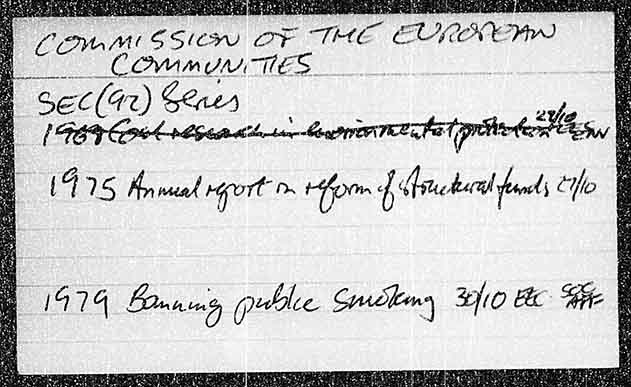 COMMISSION OF THE EUROPEAN
COMMUNITIES
SEC(92) Series
1969 Coal research in environmental
1975 Annual report on reform of structural funds 27/10
1979 Banning public smoking 30/10 EEC SOC AFF